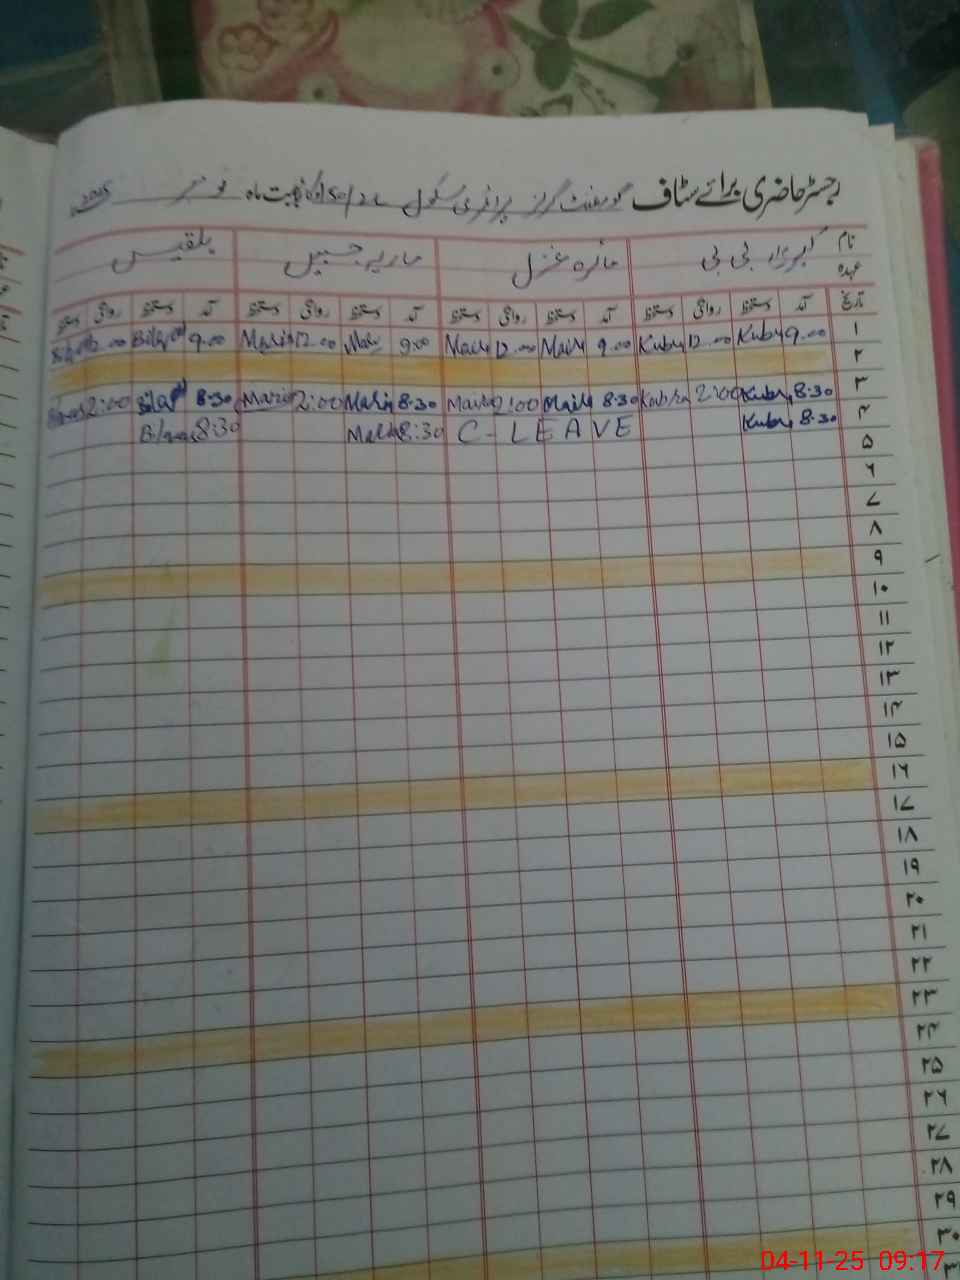 رجسٹر حاضری برائے سٹاف گورنمنٹ گرلز پرائمری سکول بابت ماہ نومبر 2025
نام کبریٰ بی بی مائرہ غزل ماریہ جبیں بلقیس
عہدہ
تاریخ آمد دستخط روانگی دستخط آمد دستخط روانگی دستخط آمد دستخط روانگی دستخط آمد دستخط روانگی دستخط
۱ 9.00 Kubra 12.00 Kubra 9.00 12.00 9:00 12.00 Maria 9.00
۲
۳ 8:30 Kubra 2:00 Kubra 8:30 2:00 8:30 Maria 2:00 Maria 8:30 2:00
۴ 8:30 Kubra C-LEAVE 8:30 8:30
۵
۶
۷
۸
۹
۱۰
۱۱
۱۲
۱۳
۱۴
۱۵
۱۶
۱۷
۱۸
۱۹
۲۰
۲۱
۲۲
۲۳
۲۴
۲۵
۲۶
۲۷
۲۸
۲۹
۳۰
04-11-25 09:17